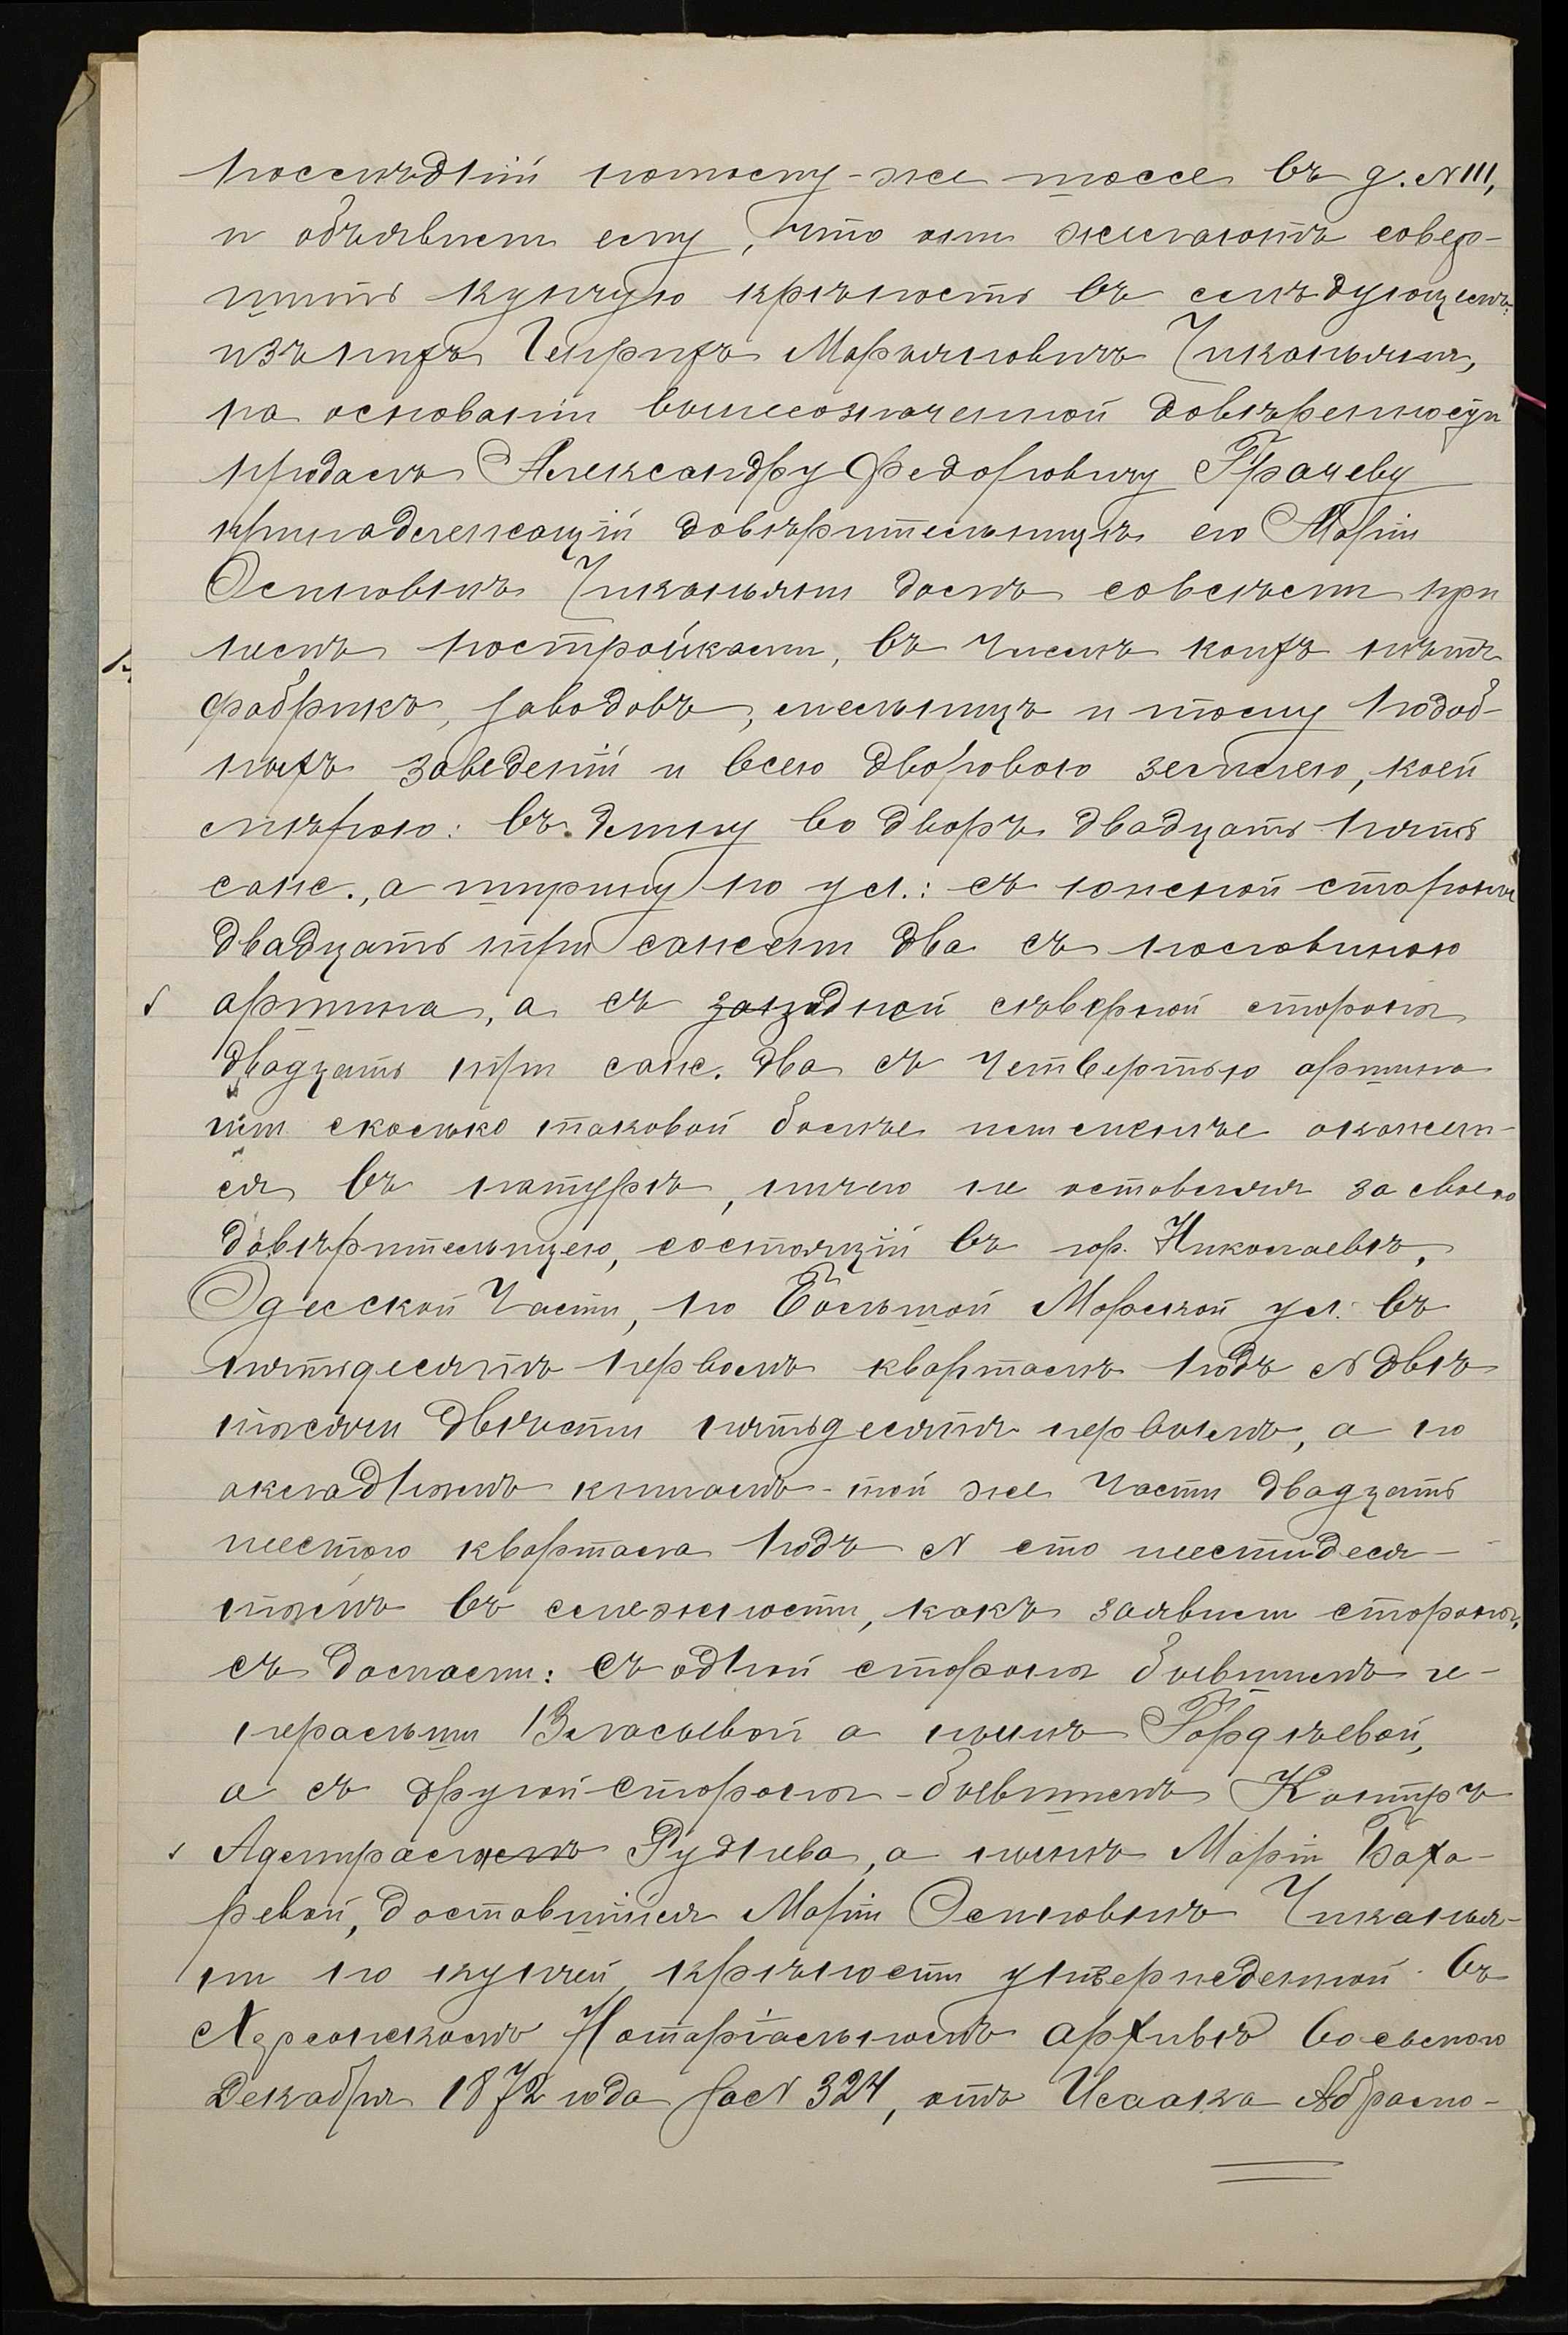 послѣдній потому-же шоссе въ д. N 111,
и объявили ему, что они желаютъ совер-
шить купчую крѣпость въ слѣдующемъ:
изъ нихъ Генрихъ Марьяновичъ Чикальяни,
на основаніи вышеозначенной довѣренности
продалъ Александру Федоровичу Грачеву
принадлежащій довѣрительницѣ его Маріи
Осиповнѣ Чикальяни домъ со всѣми при
немъ постройками, въ числѣ коихъ нѣтъ
фабрикъ, заводовъ, мельницъ и тому подоб-
ныхъ заведеній и всею дворовою землею, коей
мѣрою: въ длину во дворъ двадцать пять
саж., а ширину по ул.: съ южной стороны
двадцать три сажени два съ половиною
аршина, а съ западной сѣверной стороны
двадцать три саж. два съ четвертью аршина
или сколько таковой болѣе или менѣе окажет-
ся въ натурѣ, ничего не оставляя за своею
довѣрительницею, состоящій въ гор. Николаевѣ,
Одесской Части, по Большой Морской ул. въ
пятьдесятъ первомъ кварталѣ подъ N двѣ
тысячи двѣсти пятьдесятъ первымъ, а по
окладнымъ книгамъ - той же части двадцать
шестого квартала подъ N сто шестидеся-
тымъ въ смежности, какъ заявили стороны,
съ домами: съ одной стороны бывшимъ ге-
неральши Власьевой а нынѣ Гордѣевой,
а съ другой стороны - бывшимъ Контръ
Адмираломъ Руднева, а нынѣ Маріи Баха-
ревой, доставшійся Маріи Осиповнѣ Чикалья-
ни по купчей крѣпости утвержденной въ
Херсонскомъ Нотаріальномъ архивѣ восьмого
Декабря 1872 года за N 324, отъ Исаака Абрамо-